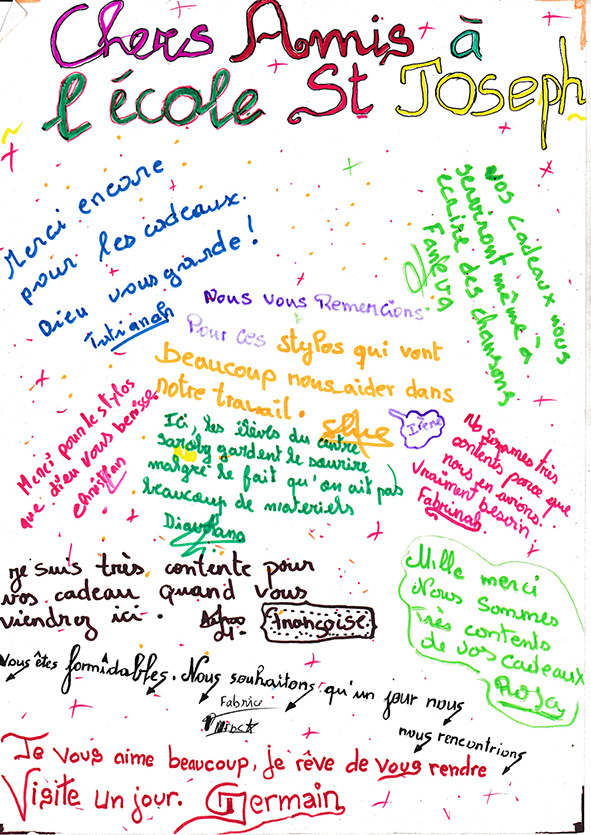 Chers Amis à
l'école St Joseph
Merci encore
pour les cadeaux.
Dieu vous garde !
Tutianah
Vos cadeaux nous
serviront même à
écrire des chansons
Faneva
Nous vous Remercions
Pour ces stylos qui vont
beaucoup nous aider dans
notre travail.
Irene
Merci pour le stylos
que dieu vous benisse
christian
Ici, les élèves du centre
saroby gardent le sourire
malgré le fait qu'on ait pas
beaucoup de materiels
Nb sommes très
contents parce que
nous en avions
vraiment besoin.
je suis très contente pour
vos cadeau quand vous
viendrez ici.
Françoise
Mille merci
Nous sommes
Très contents
de vos cadeaux
Vous êtes formidables. Nous souhaitons qu'un jour nous
nous rencontrions
Fabrice
Je vous aime beaucoup, je rêve de vous rendre
Visite un jour. Germain